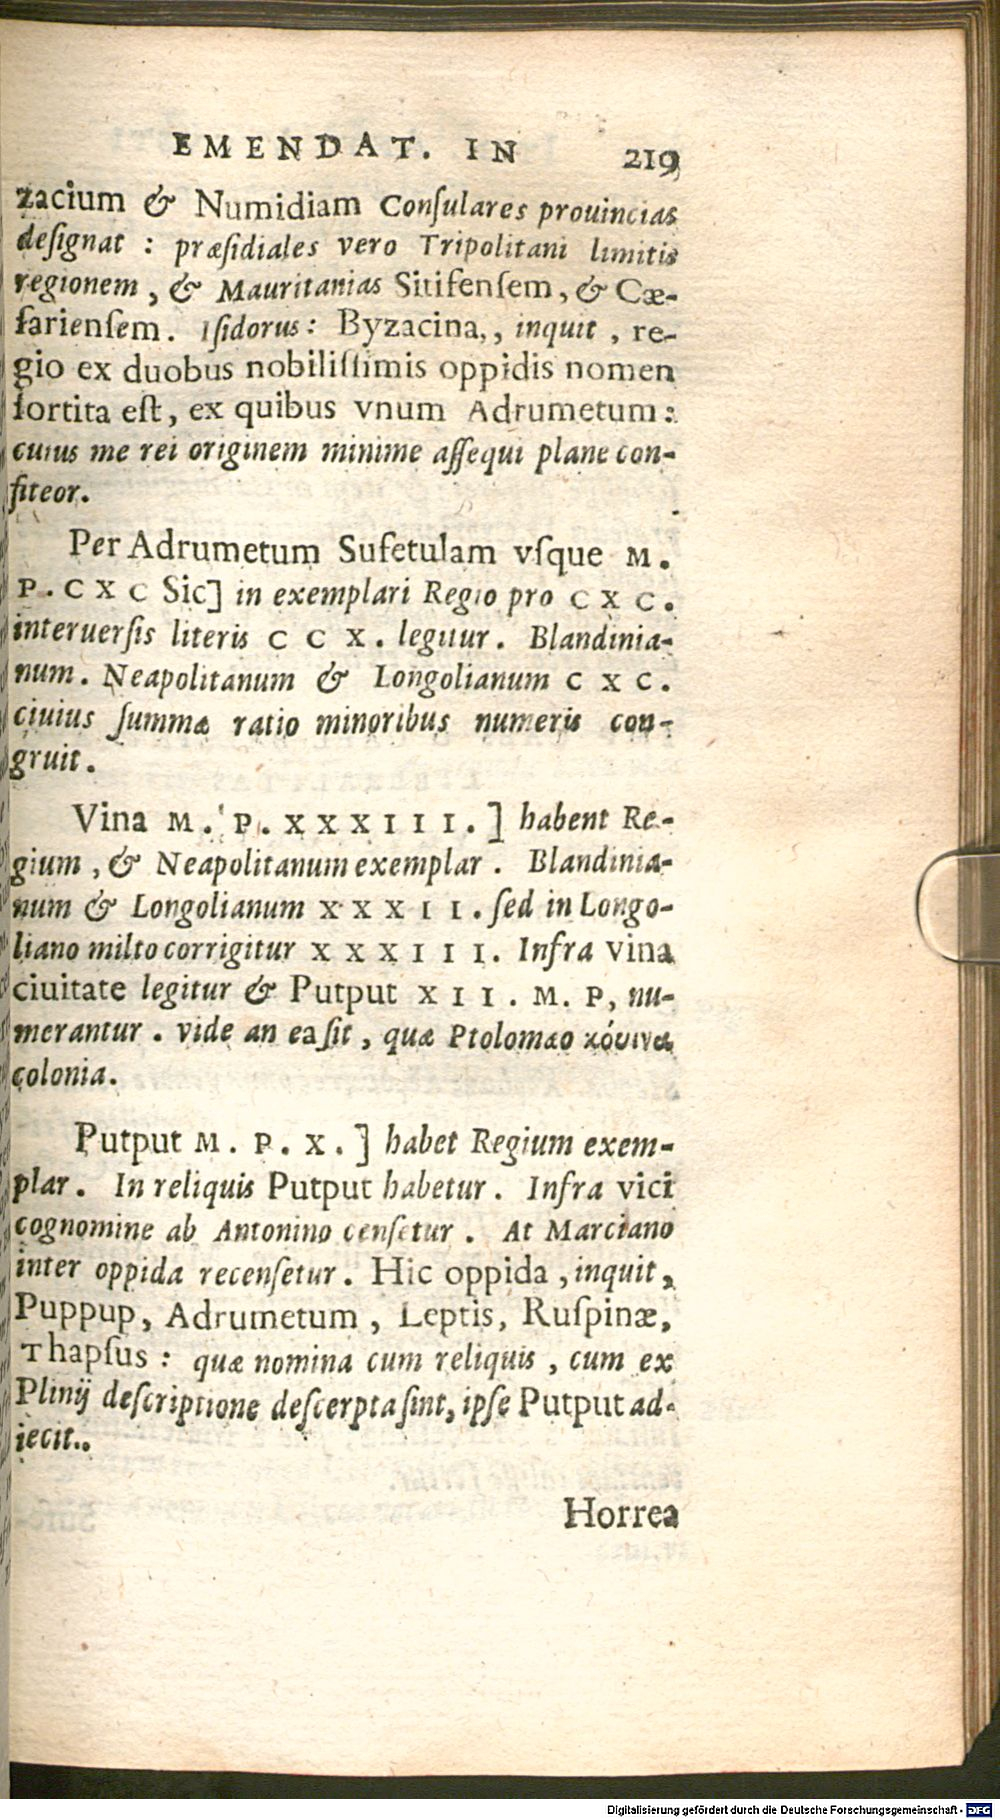 EMENDAT. IN 219
zacium & Numidiam Conſulares prouincias
deſignat : præſidiales vero Tripolitani limitis
regionem , & Mauritanias Sitifenſem , & Cæ-
ſarienſem. Iſidorus : Byzacina,, inquit , re-
gio ex duobus nobiliſſimis oppidis nomen
ſortita eſt , ex quibus vnum Adrumetum :
cuius me rei originem minime aſſequi plane con-
fiteor.
Per Adrumetum Sufetulam vſque M.
P. CXC Sic] in exemplari Regio pro CXC.
interuerſis literis CCX. legitur. Blandinia-
num. Neapolitanum & Longolianum CXC.
cuius ſummæ ratio minoribus numeris con-
gruit.
Vina M. P. XXXIII.] habent Re-
gium , & Neapolitanum exemplar. Blandinia-
num & Longolianum XXXII. ſed in Longo-
liano milto corrigitur XXXIII. Infra vina
ciuitate legitur & Putput XII. M. P, nu-
merantur. vide an ea ſit , quæ Ptolomæo
colonia.
Putput M. P. X.] habet Regium exem-
plar. In reliquis Putput habetur. Infra vici
cognomine ab Antonino cenſetur. At Marciano
inter oppida recenſetur. Hic oppida , inquit ,
Puppup, Adrumetum , Leptis, Ruſpinæ,
Thapſus : quæ nomina cum reliquis , cum ex
Plinij deſcriptione deſcerpta ſint, ipſe Putput ad-
jecit..
Horrea
Digitalisierung gefördert durch die Deutsche Forschungsgemeinschaft - DFG